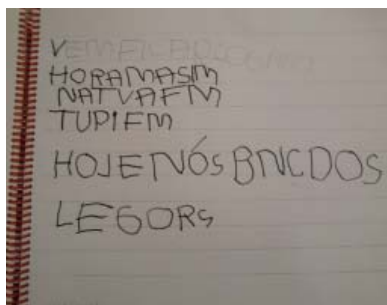 HORAMASIM
NATVAFM
TUPIFM
HOJE NÓS BNCDOS
LEGORS